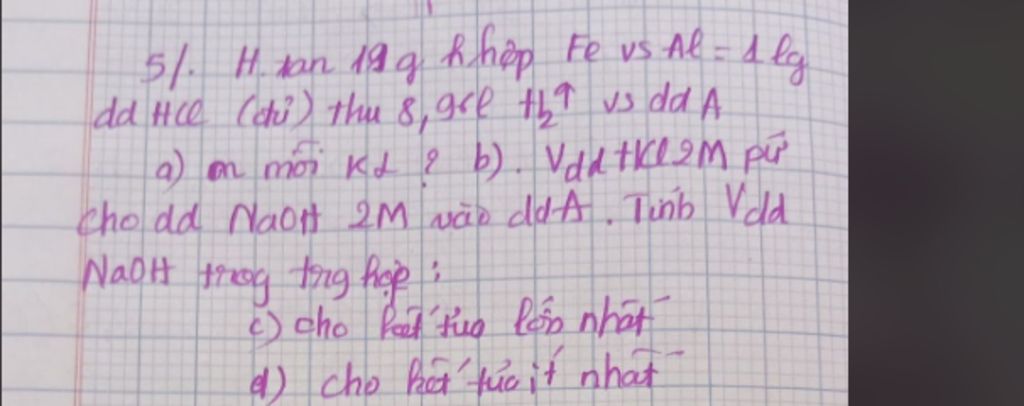 5/. H. tan 19 g h hợp Fe vs Al = 1 lg
dd HCl (đủ) thu 8,96l H2↑ vs dd A
a) m mỗi KL ? b). Vdd HCl 2M pứ
cho dd NaOH 2M vào ddA. Tính Vdd
NaOH trog trg hợp :
c) cho kết tủa lớn nhất
d) cho kết tủa ít nhất